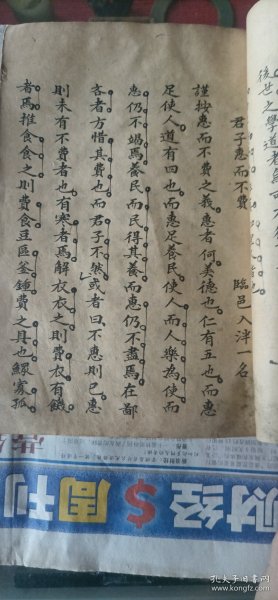 後世之學道者
君子惠而不費
臨邑入泮一名
謹按惠而不費之義惠者何美德也仁有五也而惠
足使人道有四也而惠足養民使人而人樂為使而
惠仍不竭焉養民而民得其養而惠仍不盡焉在鄙
吝者方惜其費也而君子不然或者曰不惠則已惠
則未有不費者也有寒者焉解衣衣之則費衣有饑
者焉推食食之則費食豆區釜鍾費之具也鰥寡孤
财经$周刊
孔夫子旧书网